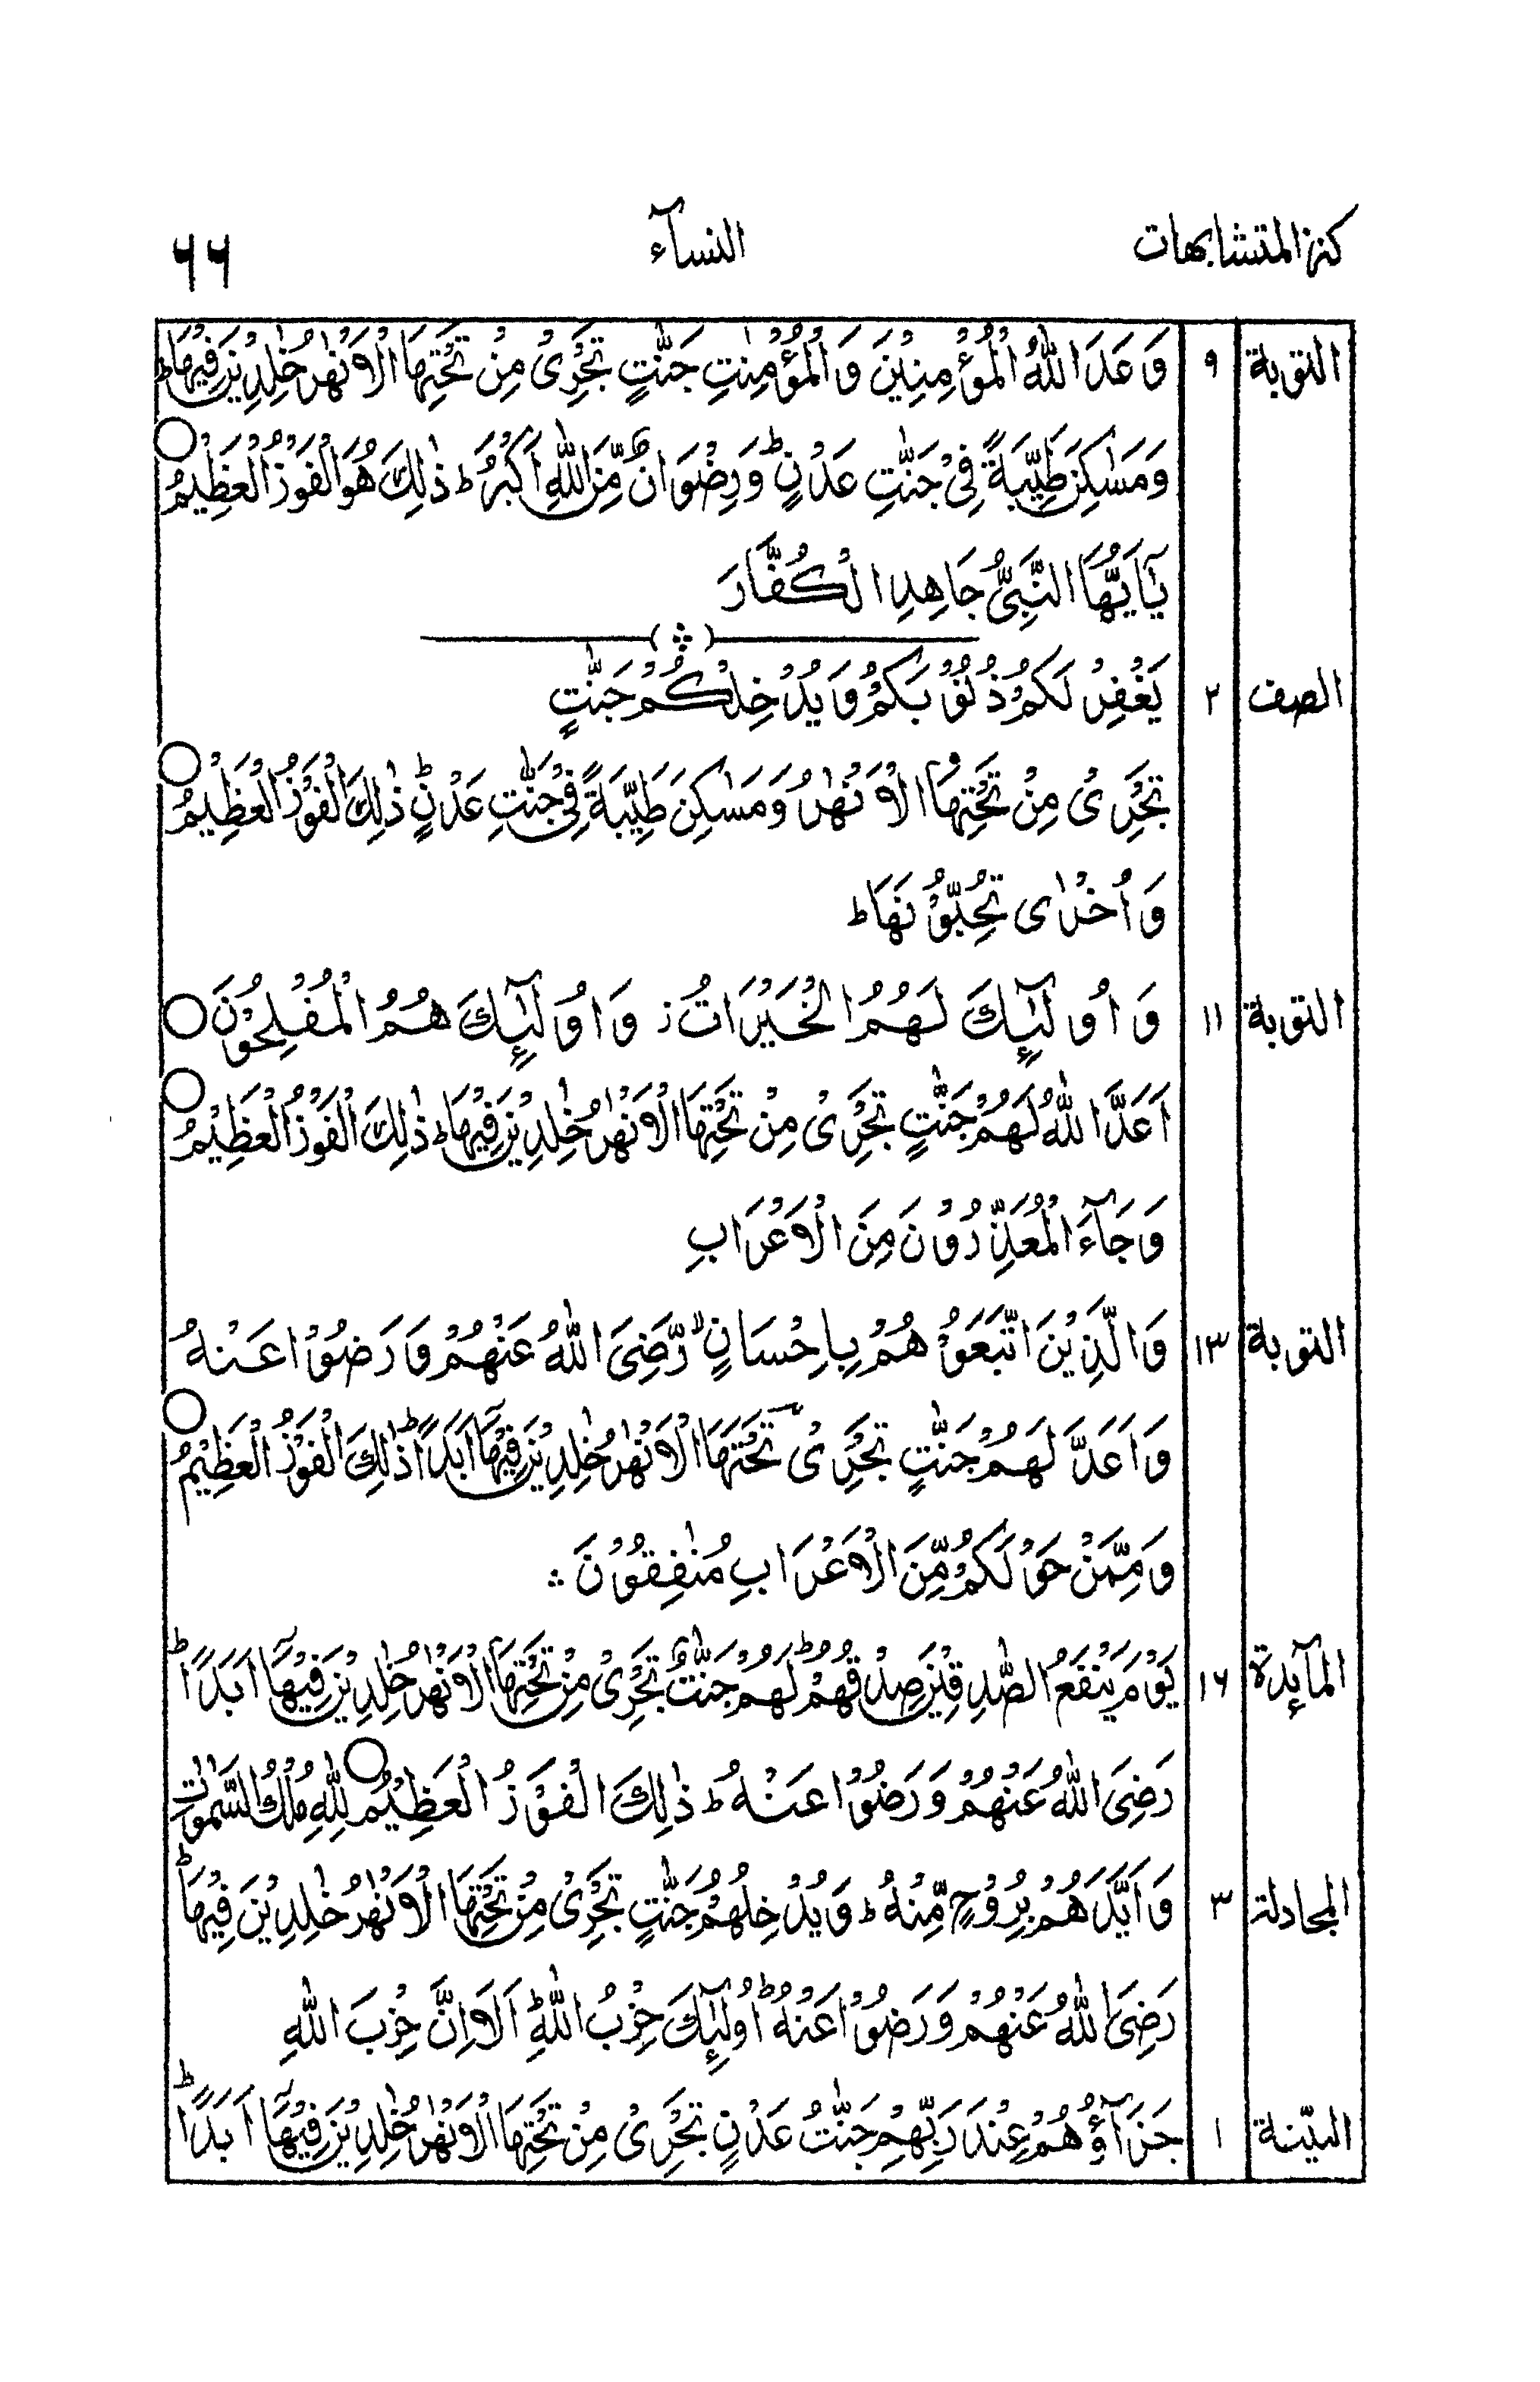 كنز المتشابهات النسآء ٦٦
التوبة ٩ وَعَدَ اللّٰهُ الْمُؤْمِنِيْنَ وَالْمُؤْمِنٰتِ جَنّٰتٍ تَجْرِيْ مِنْ تَحْتِهَا الْاَنْهٰرُ خٰلِدِيْنَ فِيْهَا ط
وَمَسٰكِنَ طَيِّبَةً فِيْ جَنّٰتِ عَدْنٍ ط وَرِضْوَانٌ مِّنَ اللّٰهِ اَكْبَرُ ط ذٰلِكَ هُوَ الْفَوْزُ الْعَظِيْمُ ○
يٰٓاَيُّهَا النَّبِيُّ جَاهِدِ الْكُفَّارَ
الصف ٢ يَغْفِرْ لَكُمْ ذُنُوْبَكُمْ وَيُدْخِلْكُمْ جَنّٰتٍ
تَجْرِيْ مِنْ تَحْتِهَا الْاَنْهٰرُ وَمَسٰكِنَ طَيِّبَةً فِيْ جَنّٰتِ عَدْنٍ ط ذٰلِكَ الْفَوْزُ الْعَظِيْمُ ○
وَاُخْرٰى تُحِبُّوْنَهَا ط
التوبة ١١ وَاُولٰٓئِكَ لَهُمُ الْخَيْرَاتُ ز وَاُولٰٓئِكَ هُمُ الْمُفْلِحُوْنَ ○
اَعَدَّ اللّٰهُ لَهُمْ جَنّٰتٍ تَجْرِيْ مِنْ تَحْتِهَا الْاَنْهٰرُ خٰلِدِيْنَ فِيْهَا ط ذٰلِكَ الْفَوْزُ الْعَظِيْمُ ○
وَجَآءَ الْمُعَذِّرُوْنَ مِنَ الْاَعْرَابِ
التوبة ١٣ وَالَّذِيْنَ اتَّبَعُوْهُمْ بِاِحْسَانٍ لا رَّضِيَ اللّٰهُ عَنْهُمْ وَرَضُوْا عَنْهُ
وَاَعَدَّ لَهُمْ جَنّٰتٍ تَجْرِيْ تَحْتَهَا الْاَنْهٰرُ خٰلِدِيْنَ فِيْهَآ اَبَدًا ط ذٰلِكَ الْفَوْزُ الْعَظِيْمُ ○
وَمِمَّنْ حَوْلَكُمْ مِّنَ الْاَعْرَابِ مُنٰفِقُوْنَ ؞
المآئدة ١٦ يَوْمُ يَنْفَعُ الصّٰدِقِيْنَ صِدْقُهُمْ ط لَهُمْ جَنّٰتٌ تَجْرِيْ مِنْ تَحْتِهَا الْاَنْهٰرُ خٰلِدِيْنَ فِيْهَآ اَبَدًا ط
رَضِيَ اللّٰهُ عَنْهُمْ وَرَضُوْا عَنْهُ ط ذٰلِكَ الْفَوْزُ الْعَظِيْمُ ○ لِلّٰهِ مُلْكُ السَّمٰوٰتِ
المجادلة ٣ وَاَيَّدَهُمْ بِرُوْحٍ مِّنْهُ ط وَيُدْخِلُهُمْ جَنّٰتٍ تَجْرِيْ مِنْ تَحْتِهَا الْاَنْهٰرُ خٰلِدِيْنَ فِيْهَا ط
رَضِيَ اللّٰهُ عَنْهُمْ وَرَضُوْا عَنْهُ ط اُولٰٓئِكَ حِزْبُ اللّٰهِ ط اَلَا اِنَّ حِزْبَ اللّٰهِ
البيّنة ١ جَزَآؤُهُمْ عِنْدَ رَبِّهِمْ جَنّٰتُ عَدْنٍ تَجْرِيْ مِنْ تَحْتِهَا الْاَنْهٰرُ خٰلِدِيْنَ فِيْهَآ اَبَدًا ط